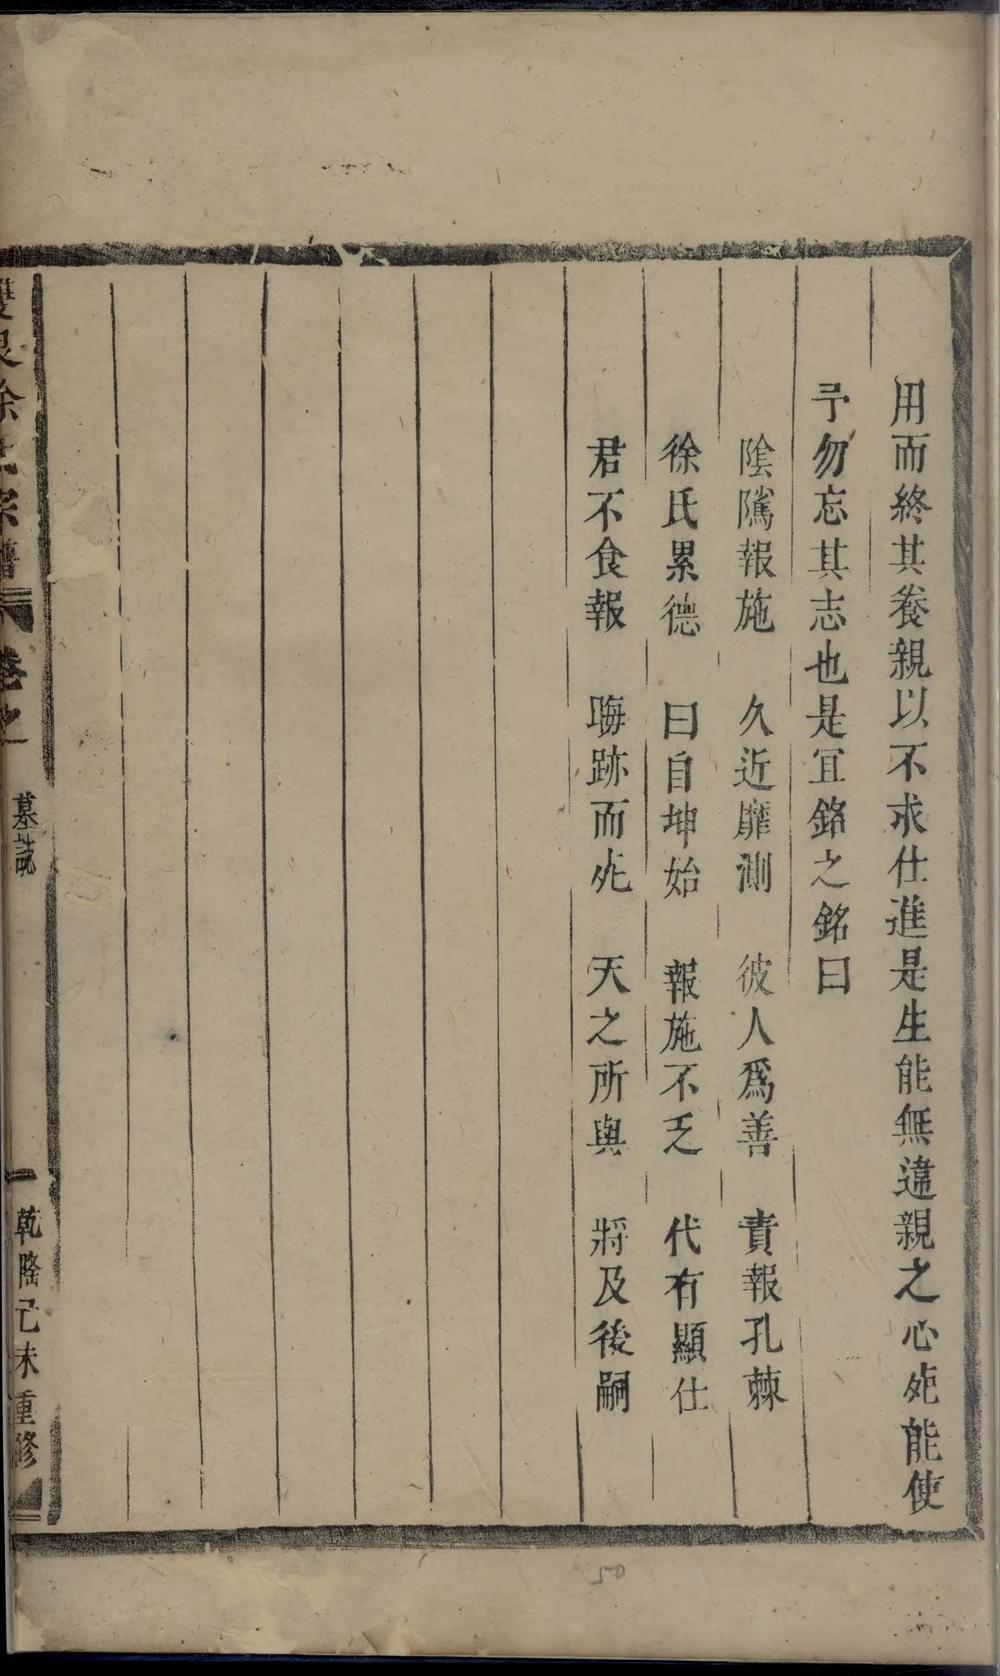 用而終其養親以不求仕進是生能無違親之心死能使
予勿忘其志也是宜銘之銘曰
陰隲報施 久近靡測 彼人爲善 責報孔棘
徐氏累德 曰自坤始 報施不乏 代有顯仕
君不食報 晦跡而死 天之所與 將及後嗣
徐氏宗譜 卷之 墓誌 一 乾隆己未重修
50